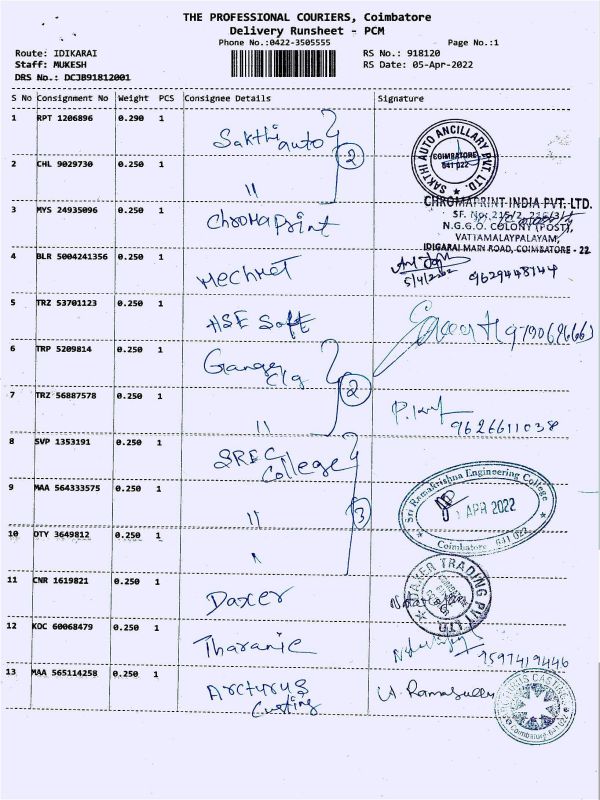 THE PROFESSIONAL COURIERS, Coimbatore
Delivery Runsheet - PCM
Phone No.:0422-3505555 Page No.:1
Route: IDIKARAI RS No.: 918120
Staff: MUKESH RS Date: 05-Apr-2022
DRS No.: DCJB91812001
S No Consignment No Weight PCS Consignee Details Signature
1 RPT 1206896 0.290 1 Sakthi auto
2 CHL 9029730 0.250 1 〃 2
SAKTHI AUTO ANCILLARY PVT. LTD.
COIMBATORE
641 022
3 MYS 24935096 0.250 1 Chromaprint
CHROMAPRINT INDIA PVT. LTD.
N.G.G.O. COLONY (POST),
VATTAMALAYPALAYAM,
IDIGARAI MAIN ROAD, COIMBATORE - 22
4 BLR 5004241356 0.250 1 Mechmet
5/4/2022 9629448144
5 TRZ 53701123 0.250 1 HSE Soft
6 TRP 5209814 0.250 1 Ganga clg
7 TRZ 56887578 0.250 1 〃 2
9626611038
8 SVP 1353191 0.250 1 SREC College
9 MAA 564333575 0.250 1 〃 3
Sri Ramakrishna Engineering College
APR 2022
Coimbatore 641 022
10 DTY 3649812 0.250 1
11 CNR 1619821 0.250 1 Daxer
DAXER TRADING PVT LTD
12 KOC 60068479 0.250 1 Tharanie
9597419446
13 MAA 565114258 0.250 1 Arcturus Casting